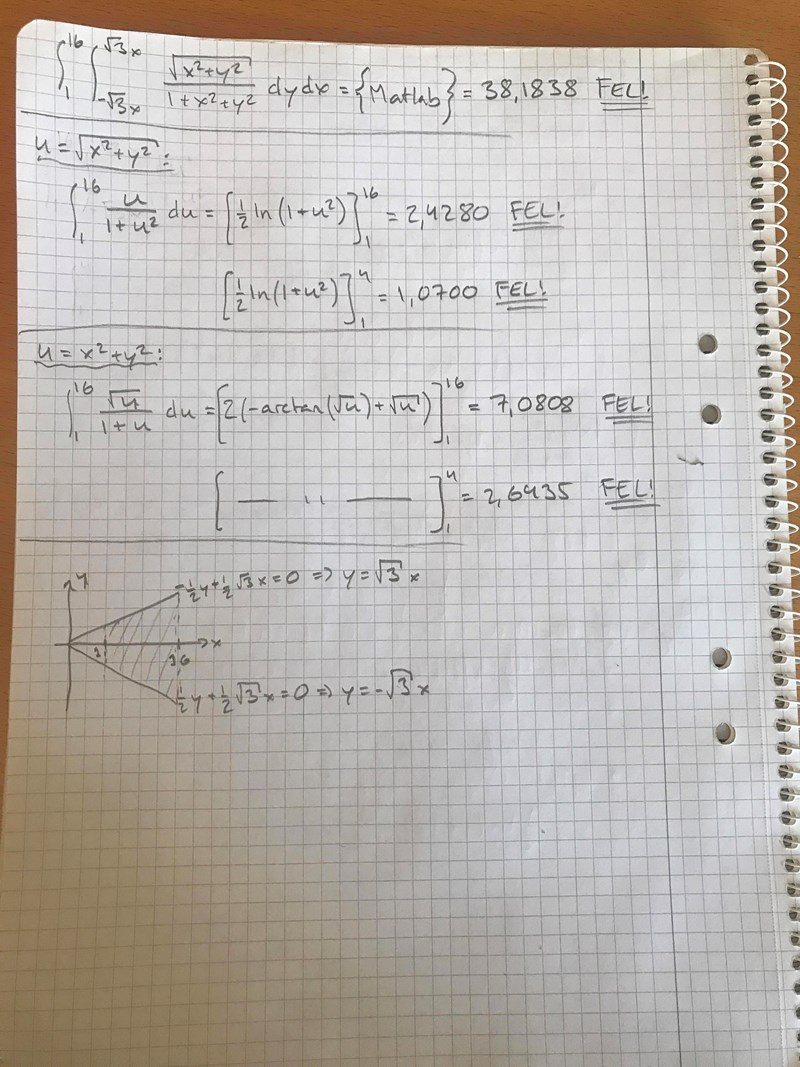 ∫₁¹⁶ ∫_{-√3x}^{√3x} √(x²+y²)/(1+x²+y²) dydx = {Matlab} = 38,1838 FEL!
u = √(x²+y²):
∫₁¹⁶ u/(1+u²) du = [½ ln(1+u²)]₁¹⁶ = 2,4280 FEL!
[½ ln(1+u²)]₁⁴ = 1,0700 FEL!
u = x²+y²:
∫₁¹⁶ √u/(1+u) du = [2(-arctan(√u)+√u)]₁¹⁶ = 7,0808 FEL!
[ — '' — ]₁⁴ = 2,6435 FEL!
y
-½y+½√3x=0 => y=√3x
x
1
16
½y+½√3x=0 => y=-√3x